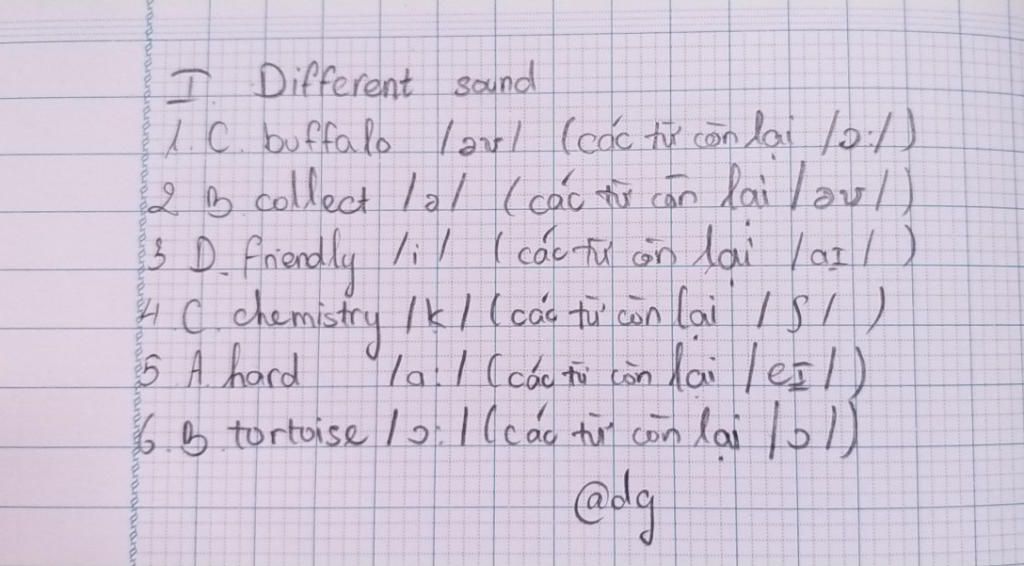 I. Different sound
1. C. buffalo /əʊ/ (các từ còn lại /ɔ:/)
2 B collect /ə/ (các từ còn lại /əʊ/)
3 D. friendly /i/ (các từ còn lại /aɪ/)
4 C. chemistry /k/ (các từ còn lại /ʃ/)
5 A. hard /a:/ (các từ còn lại /eɪ/)
6. B tortoise /ɔ:/ (các từ còn lại /ɔ/)
@dg